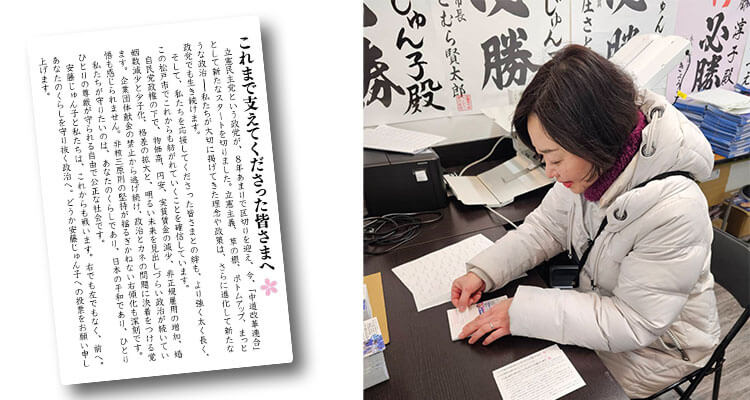 これまで支えてくださった皆さまへ
立憲民主党という政党が、8年あまりで区切りを迎え、今、「中道改革連合」
として新たなスタートを切りました。立憲主義、草の根、ボトムアップ、まっと
うな政治――私たちが大切に掲げてきた理念や政策は、さらに進化して新たな
政党でも生き続けます。
そして、私たちを応援してくださった皆さまとの絆も、より強く太く長く、
この松戸市でこれからも紡がれていくことを確信しています。
自民党政権の下で、物価高、円安、実質賃金の減少、非正規雇用の増加、婚
姻数減少と少子化、格差の拡大と、明るい未来を見出しづらい政治が続いてい
ます。企業団体献金の禁止から逃げ続け、政治とカネの問題に決着をつける覚
悟も感じられません。非核三原則の堅持が揺るぎかねない右傾化も深刻です。
私たちが守りたいのは、あなたのくらしであり、日本の平和であり、ひとり
ひとりの尊厳が守られる自由で公正な社会です。
安藤じゅん子と私たちは、これからも戦います。右でも左でもなく、前へ。
あなたのくらしを守り抜く政治へ。どうか安藤じゅん子への投票をお願い申し
上げます。
淳子殿
必勝
必勝
じゅん子殿
市長
むら賢太郎
必勝
じゅん子殿